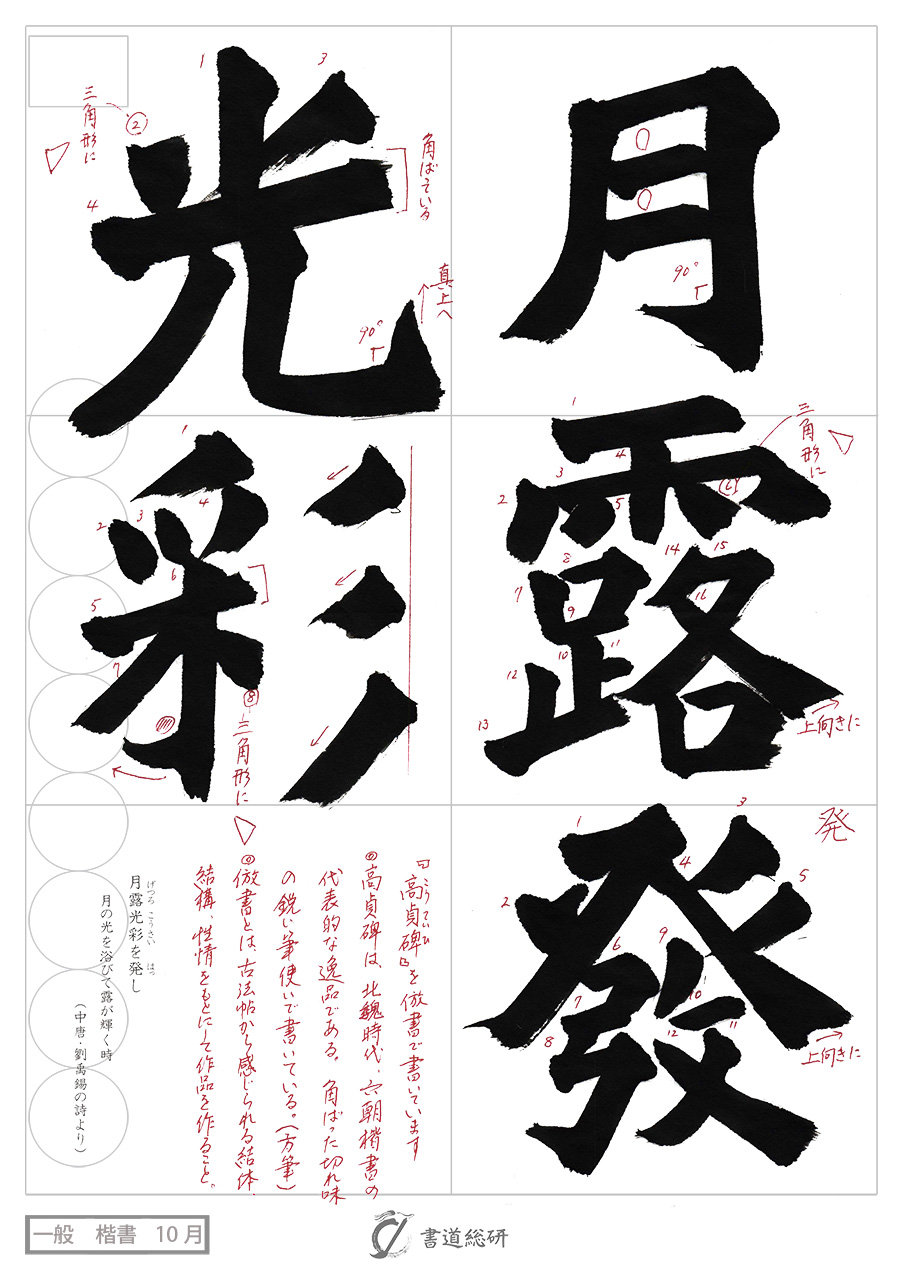 月露發
光彩
発
三角形に
上向きに
上向きに
90°
三角形に
角ばっている
真上へ
90°
三角形に
「高貞碑」を倣書で書いています
こうていひ
◎高貞碑は、北魏時代、六朝楷書の
代表的な逸品である。角ばった切れ味
の鋭い筆使いで書いている。(方筆)
◎倣書とは、古法帖から感じられる結体、
結構、性情をもとにして作品を作ること。
月露光彩を発し
げつろ こうさい はっ
月の光を浴びて露が輝く時
(中唐・劉禹錫の詩より)
一般 楷書 10月
書道総研